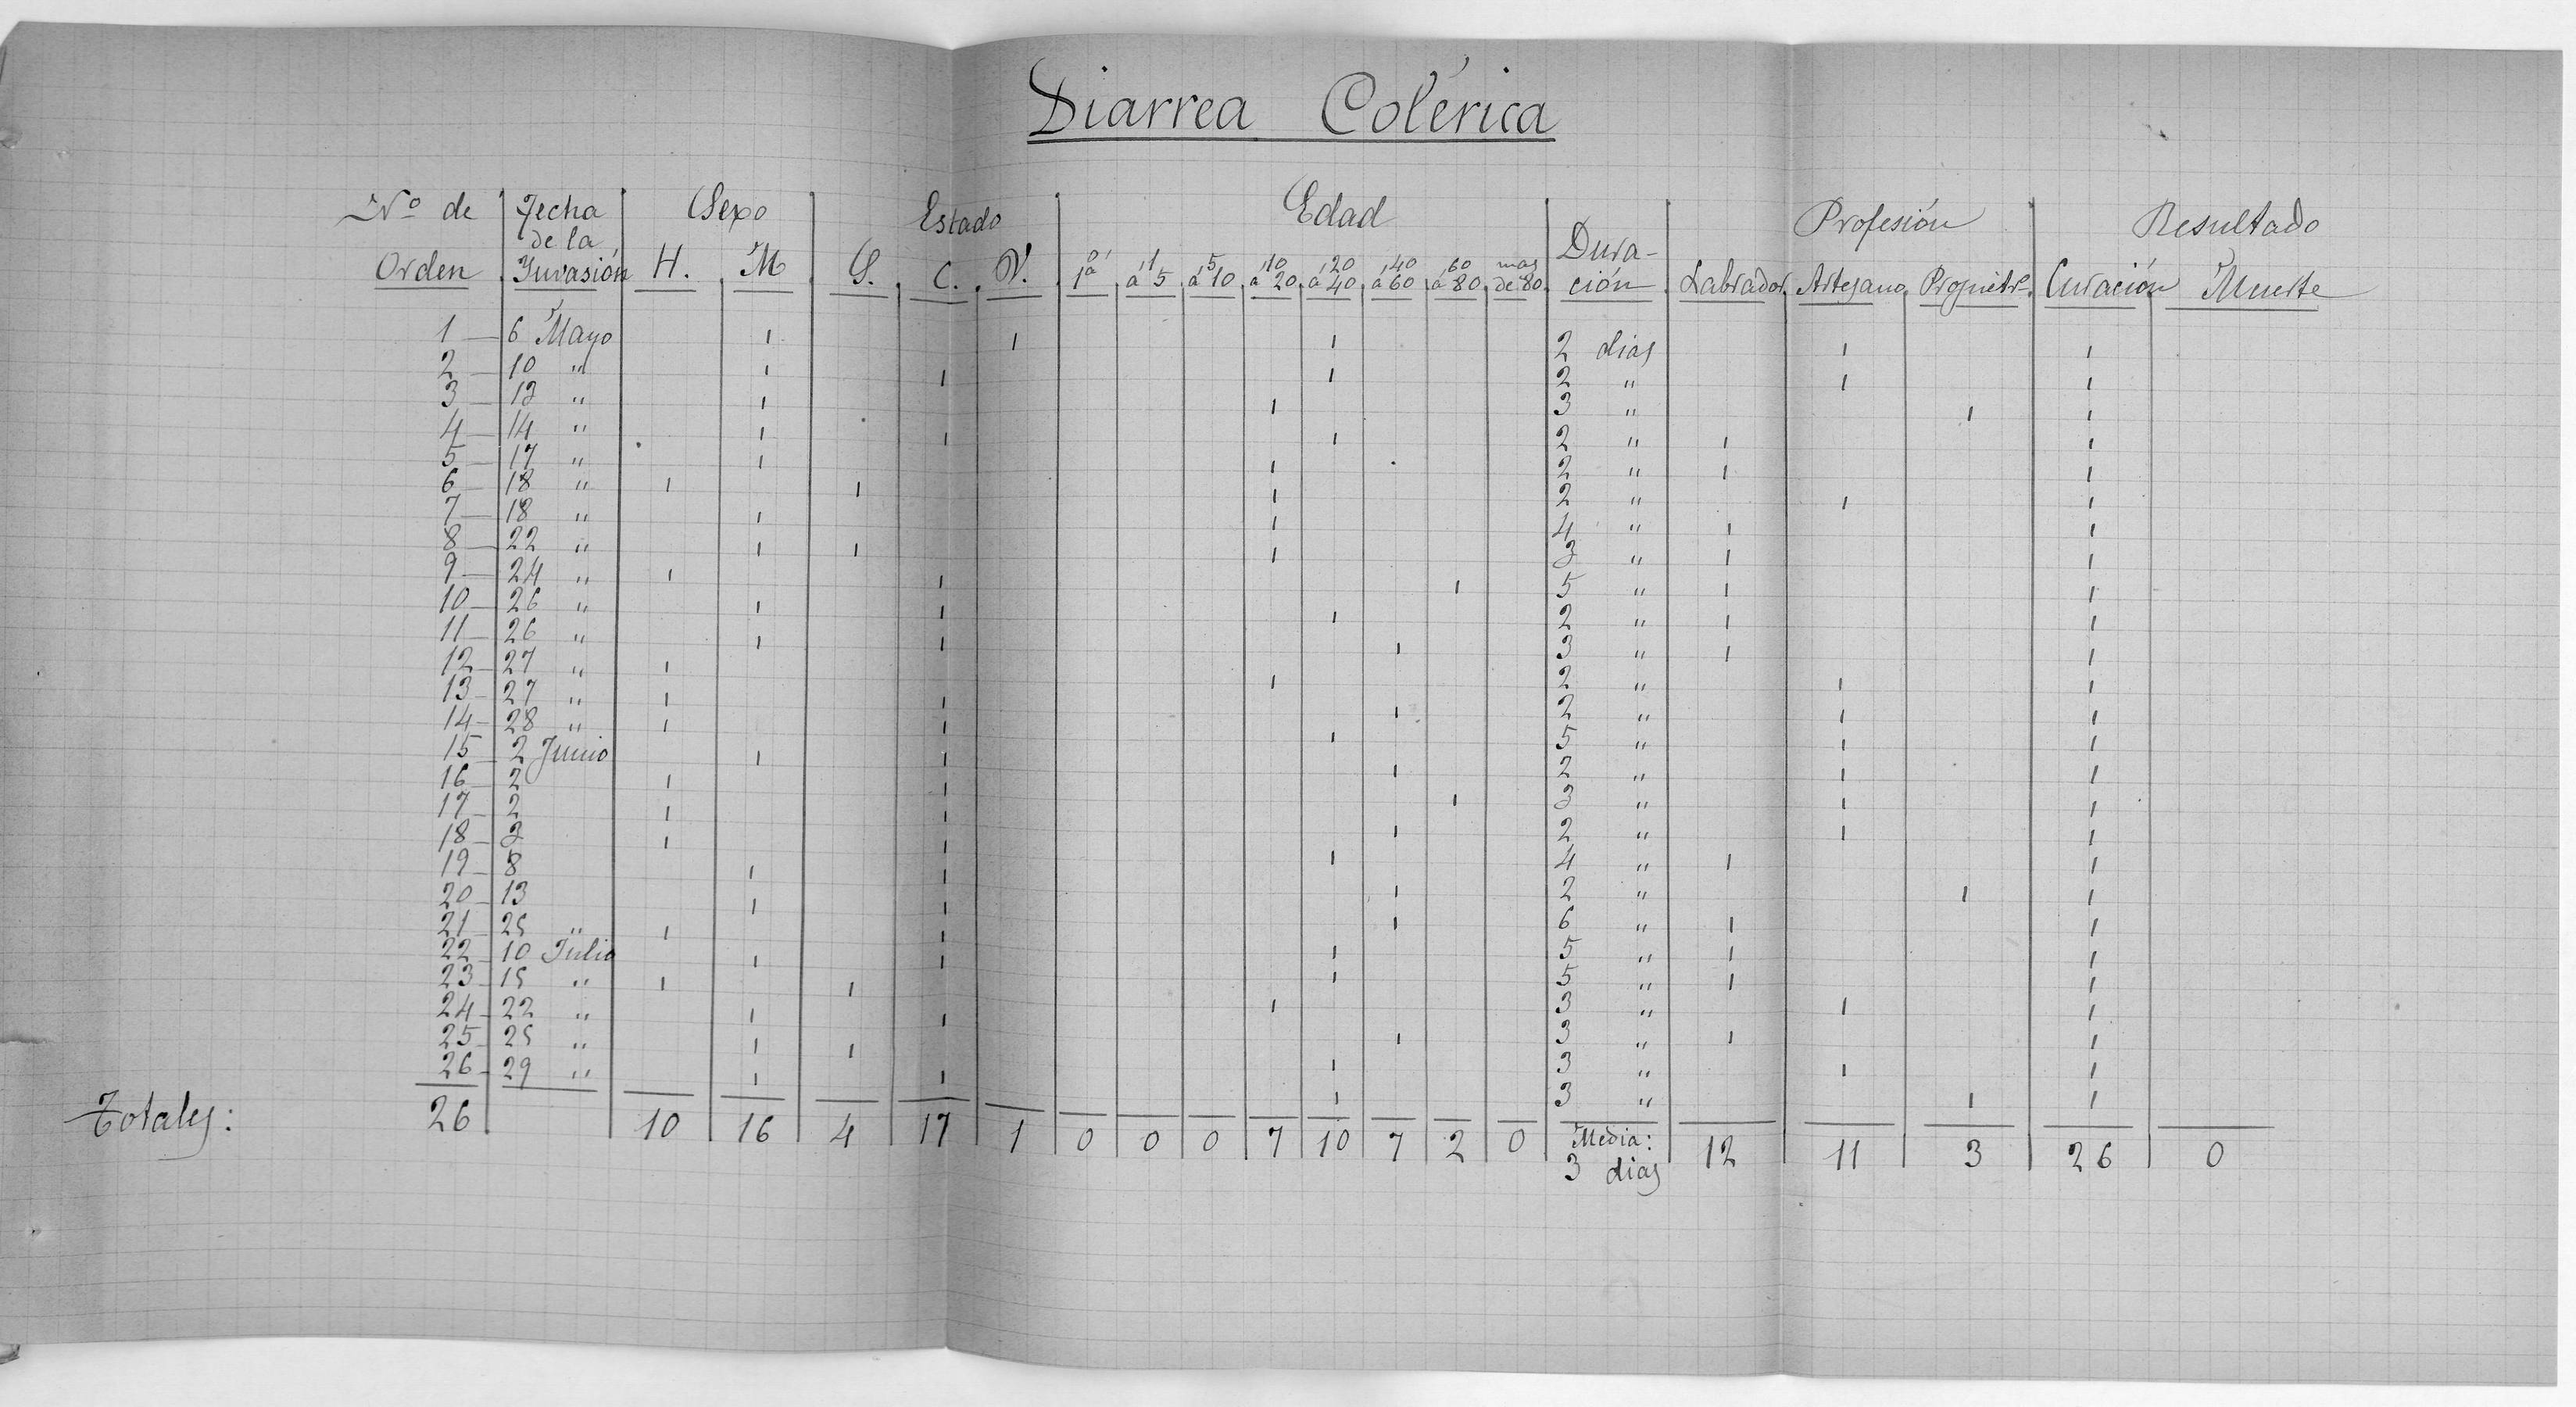 Diarrea Colérica
Nº de Orden Fecha de la Invasión Sexo Estado Edad Duración Profesión Resultado
H. M S. C. V. 0 á 1 1 á 5 5 á 10 10 á 20 20 á 40 40 á 60 60 á 80 mas de 80 Labrador Artesano Propietr. Curación Muerte
1 6 Mayo 1 1 1 2 dias 1 1
2 10 " 1 1 1 2 " 1 1
3 13 " 1 1 3 " 1 1
4 14 " 1 1 1 2 " 1 1
5 17 " 1 1 2 " 1 1
6 18 " 1 1 1 2 " 1 1
7 18 " 1 1 4 " 1 1
8 22 " 1 1 1 3 " 1 1
9 24 " 1 1 1 5 " 1 1
10 26 " 1 1 1 2 " 1 1
11 26 " 1 1 1 3 " 1 1
12 27 " 1 1 2 " 1 1
13 27 " 1 1 1 2 " 1 1
14 28 " 1 1 1 5 " 1 1
15 2 Junio 1 1 1 2 " 1 1
16 2 1 1 1 3 " 1 1
17 2 1 1 1 2 " 1 1
18 3 1 1 1 4 " 1 1
19 8 1 1 1 2 " 1 1
20 13 1 1 1 6 " 1 1
21 25 " 1 1 1 5 " 1 1
22 10 Julio 1 1 1 5 " 1 1
23 15 " 1 1 1 3 " 1 1
24 22 " 1 1 1 3 " 1 1
25 25 " 1 1 1 3 " 1 1
26 29 " 1 1 1 3 " 1 1
Totales: 26 10 16 4 17 1 0 0 0 7 10 7 2 0 Media: 3 dias 12 11 3 26 0